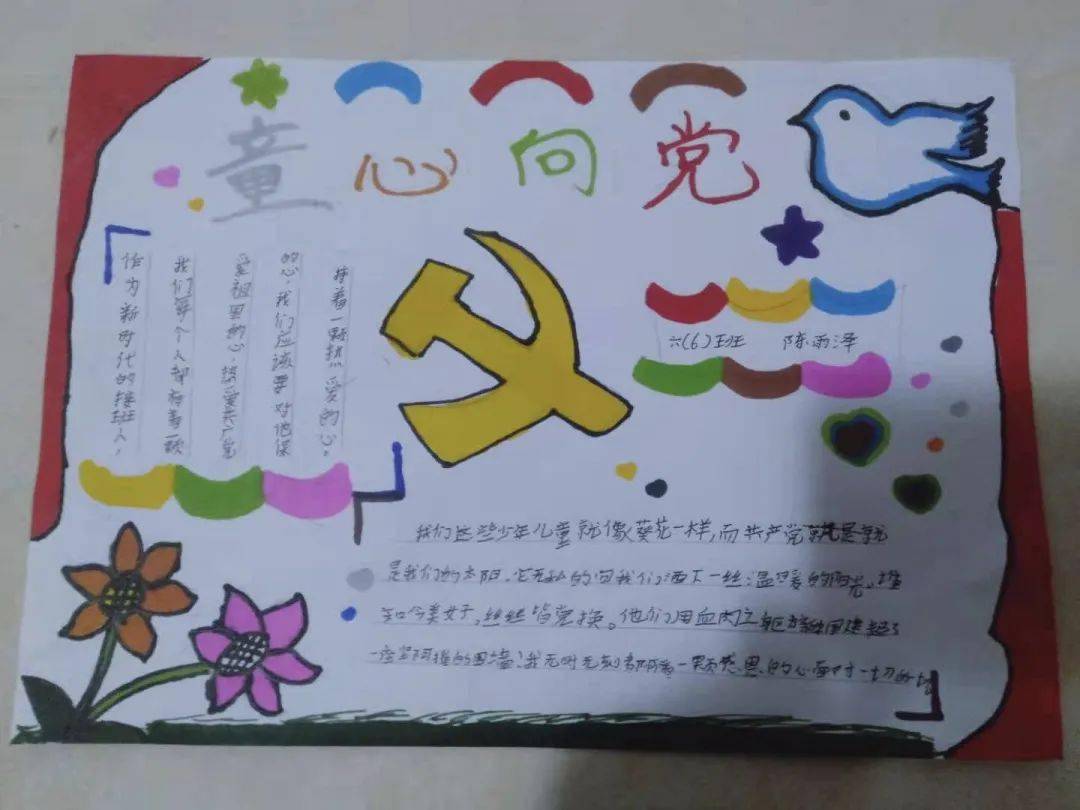 童心向党
六(6)班 陈雨泽
作为新时代的接班人,
我们每个人都有着一颗
爱祖国的心,热爱共党
的心,我们应该要对他保
持着一颗热爱的心。
我们这些少年儿童就像葵花一样,而共产党就是就
是我们的太阳,它无私的向我们洒下一丝温暖的阳光。谁
知今美好,丝丝皆党换。他们用血肉之躯
一座的围墙,我无时无刻都一颗感恩的心面对一切的